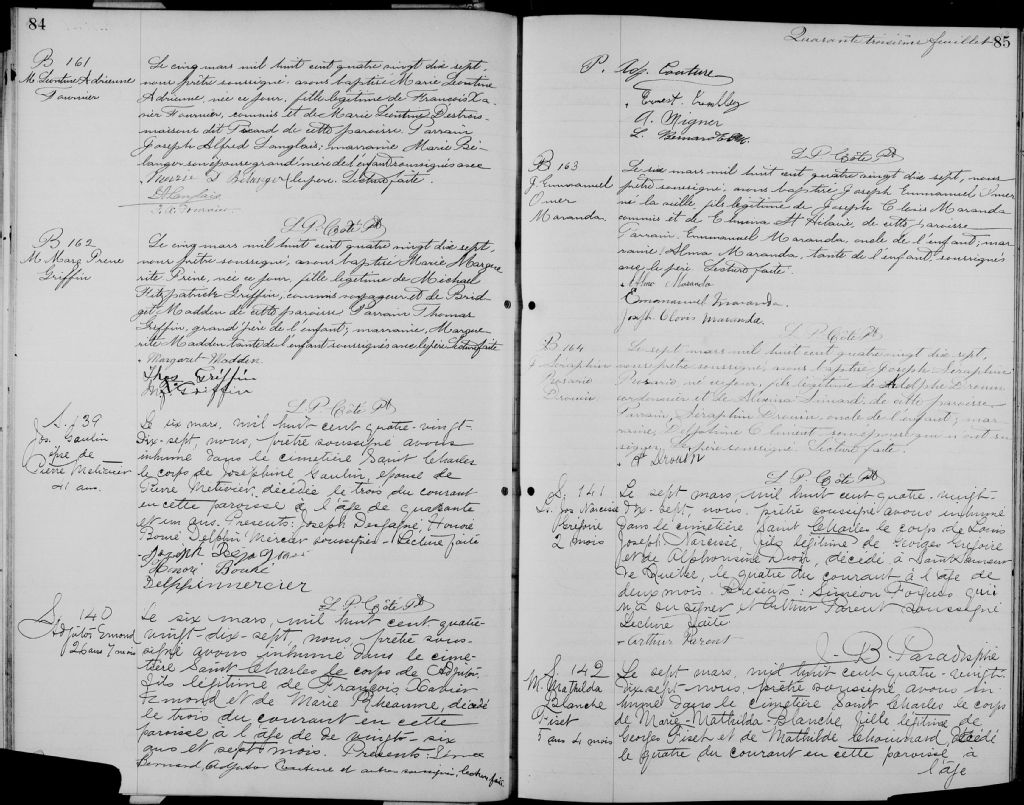 84
B 161
M. Leontine Adrienne
Fournier
Le cinq mars mil huit cent quatre vingt dix sept,
nous prêtre soussigné avons baptisé Marie Leontine
Adrienne, née ce jour, fille légitime de François Xa-
vier Fournier, commis et de Marie Leontine Destrois-
maisons dit Picard de cette paroisse. Parrain
Joseph Alfred Langlais; marraine Marie Bé-
langer son épouse grand'mère de l'enfant soussignés avec
le père. Lecture faite.
L. P. Côté Ptr
B 162
M. Marg Irene
Griffin
Le cinq mars mil huit cent quatre vingt dix sept,
nous prêtre soussigné, avons baptisé Marie Margue
rite Irène, née ce jour, fille légitime de Michael
Fitzpatrick Griffin, commis voyageur et de Brid-
get Madden de cette paroisse Parrain Thomas
Griffin, grand'père de l'enfant; marraine, Margue-
rite Madden tante de l'enfant soussignés avec le père Lecture faite
Margaret Madden
Thos Griffin
Griffin
L. P. Côté Ptr
S. 139
Jos. Gaulin
épse de
Pierre Metivier
41 ans.
Le six mars, mil huit cent quatre-vingt-
dix-sept, nous, prêtre soussigné avons
inhumé dans le cimetière Saint Charles
le corps de Josephine Gaulin, épouse de
Pierre Metivier, décédée le trois du courant
en cette paroisse à l'âge de quarante
et un ans. Présents: Joseph Honoré
Bouré Delphin Mercier soussignés - Lecture faite
Joseph
Honoré Bouré
Delphin mercier
L. P. Côté Ptr
S. 140
Adjutor Emond
26 ans 7 mois
Le six mars, mil huit cent quatre-
vingt-dix-sept, nous, prêtre sous-
signé avons inhumé dans le cime-
tière Saint Charles le corps de Adjutor
fils légitime de François Xavier
Emond et de Marie Rheaume, décédé
le trois du courant en cette
paroisse à l'âge de de vingt-six
ans et sept mois. Présents: Ernest
Adjutor Couture et autres soussignés, lecture faite
Quarante troisième feuillet 85
P. Adj. Couture
Ernest Tremblay
L. P. Côté Ptr
B 163
J Emmanuel
Omer
Maranda.
Le six mars mil huit cent quatre vingt dix sept, nous
prêtre soussigné, avons baptisé Joseph Emmanuel Omer
né la veille, fils légitime de Joseph Clovis Maranda
commis et de Emma St Hilaire, de cette paroisse
Parrain, Emmanuel Maranda, oncle de l'enfant; mar
raine, Alma Maranda, tante de l'enfant soussignés
avec le père Lecture faite.
Alma Maranda
Emmanuel Maranda.
Joseph Clovis Maranda.
L. P. Côté Ptr
B 164
J Séraphin
Rosario
Drouin.
Le sept mars mil huit cent quatre vingt dix sept,
nous prêtre soussigné, avons baptisé Joseph Séraphin
Rosario né ce jour, fils légitime de Adolphe Drouin
cordonnier et de de cette paroisse
Parrain, Séraphin Drouin, oncle de l'enfant; mar-
raine, Delphine Clement son épouse qui n'ont su
signer. Le père soussigné. Lecture faite.
Drouin
L. P. Côté Ptr
S. 141
Ls. Jos Narcisse
Gregoire
2 mois
Le sept mars, mil huit cent quatre-vingt-
dix-sept, nous, prêtre soussigné avons inhumé
dans le cimetière Saint Charles le corps de Louis
Joseph Narcisse, fils légitime de Georges Grégoire
et de Alphonsine Dion, décédé à Saint Sauveur
de Québec, le quatre du courant à l'âge de
deux mois. Présents: Siméon qui
n'a su signer et Arthur Parent soussigné
Lecture faite
Arthur Parent
J. B. Paradis Ptre
S. 142
M. Mathilda
Blanche
Fiset
5 ans 4 mois
Le sept mars, mil huit cent quatre-vingt-
dix-sept-nous, prêtre soussigné avons in-
humé dans le cimetière Saint Charles le corps
de Marie-Mathilda-Blanche, fille légitime de
Georges Fiset et de Mathilde Chouinard, décédé
le quatre du courant en cette paroisse, à
l'âge